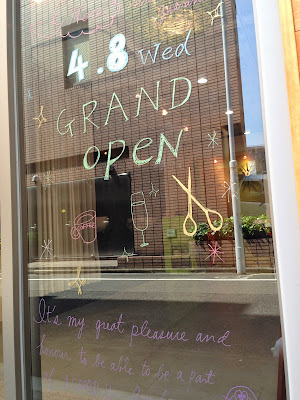 4.8 Wed
GRAND
OPEN
It's my great pleasure and
honour to be able to be a part